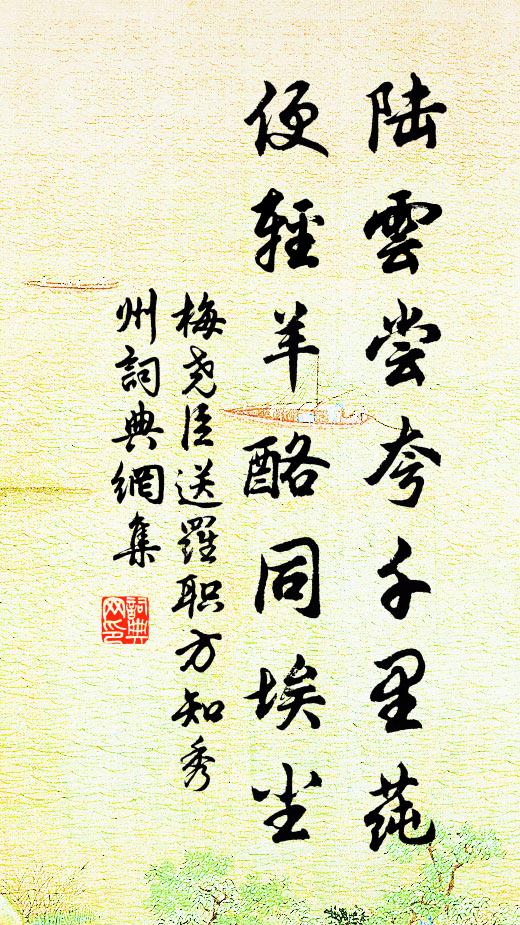 陆雲尝夸千里莼
便輕羊酪同埃尘
梅尧臣送羅职方知秀
州詞典網集
詞典网印